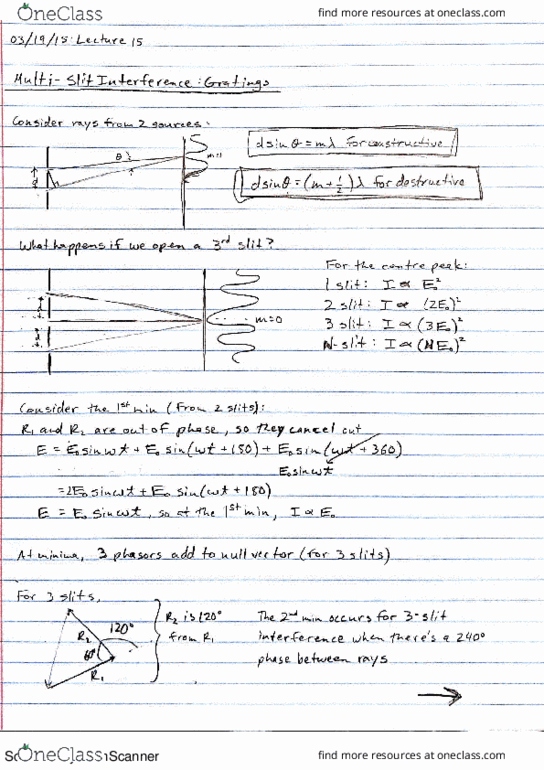 OneClass find more resources at oneclass.com
03/19/15: Lecture 15
Multi-Slit Interference: Gratings
Consider rays from 2 sources:
d sin θ = mλ for constructive
d sin θ = (m + 1/2) λ for destructive
θ
m=1
d
What happens if we open a 3rd slit?
For the centre peak:
1 slit: I ∝ E₀²
2 slit: I ∝ (2E₀)²
3 slit: I ∝ (3E₀)²
N-slit: I ∝ (NE₀)²
d
d
m=0
Consider the 1st min (from 2 slits):
R₁ and R₂ are out of phase, so they cancel out
E = E₀ sin ωt + E₀ sin (ωt + 180) + E₀ sin (ωt + 360)
E₀ sin ωt
= 2E₀ sin ωt + E₀ sin (ωt + 180)
E = E₀ sin ωt, so at the 1st min, I ∝ E₀
At minima, 3 phasors add to null vector (for 3 slits)
For 3 slits,
R₂ 120°
60°
R₁
R₂ is 120°
from R₁
The 2nd min occurs for 3-slit
interference when there's a 240°
phase between rays
OneClass Scanner find more resources at oneclass.com